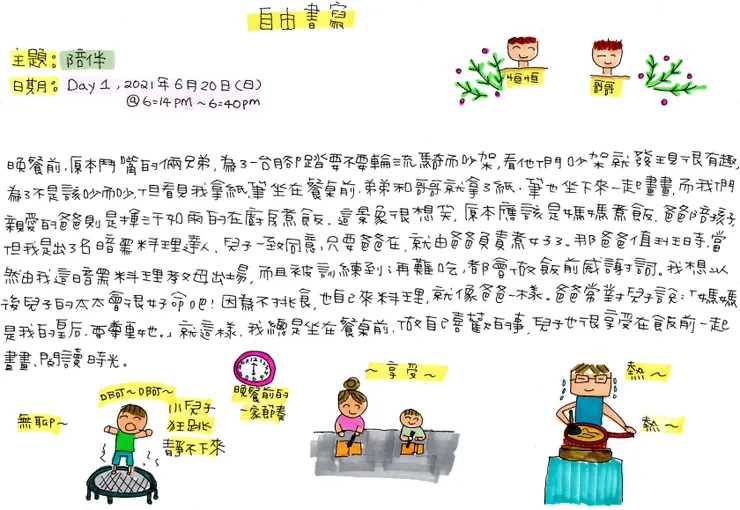 自由書寫
主題：陪伴
日期：Day 1，2021年6月20日(日)
@6:14PM～6:40pm
恒恒
哥哥
晚餐前，原本鬥嘴的倆兄弟，為了一台腳踏要不要輪流騎而吵架，看他們吵架就發現很有趣，
為了不是該吵而吵，但看見我拿紙、筆坐在餐桌前，弟弟和哥哥就拿了紙、筆也坐下來一起畫畫，而我們
親愛的爸爸則是揮汗如雨的在廚房煮飯。這景象很想笑，原本應該是媽媽煮飯、爸爸陪孩子，
但我是出了名暗黑料理達人，兒子一致同意，只要爸爸在，就由爸爸負責煮好了。那爸爸值班時，當
然由我這暗黑料理教母出場，而且被訓練到：再難吃，都會做飯前感謝詞。我想以
後兒子的太太會很好命吧！因為不挑食，也自己來料理，就像爸爸一樣。爸爸常對兒子說：「媽媽
是我的皇后，要尊重她。」就這樣，我總是坐在餐桌前，做自己喜歡的事，兒子也很享受在飯前一起
畫畫、閱讀時光。
無聊～
ㄉㄨㄞ～ㄉㄨㄞ～
小兒子
狂跳
靜不下來
晚餐前的
一家節奏
～享受～
熱～
熱～